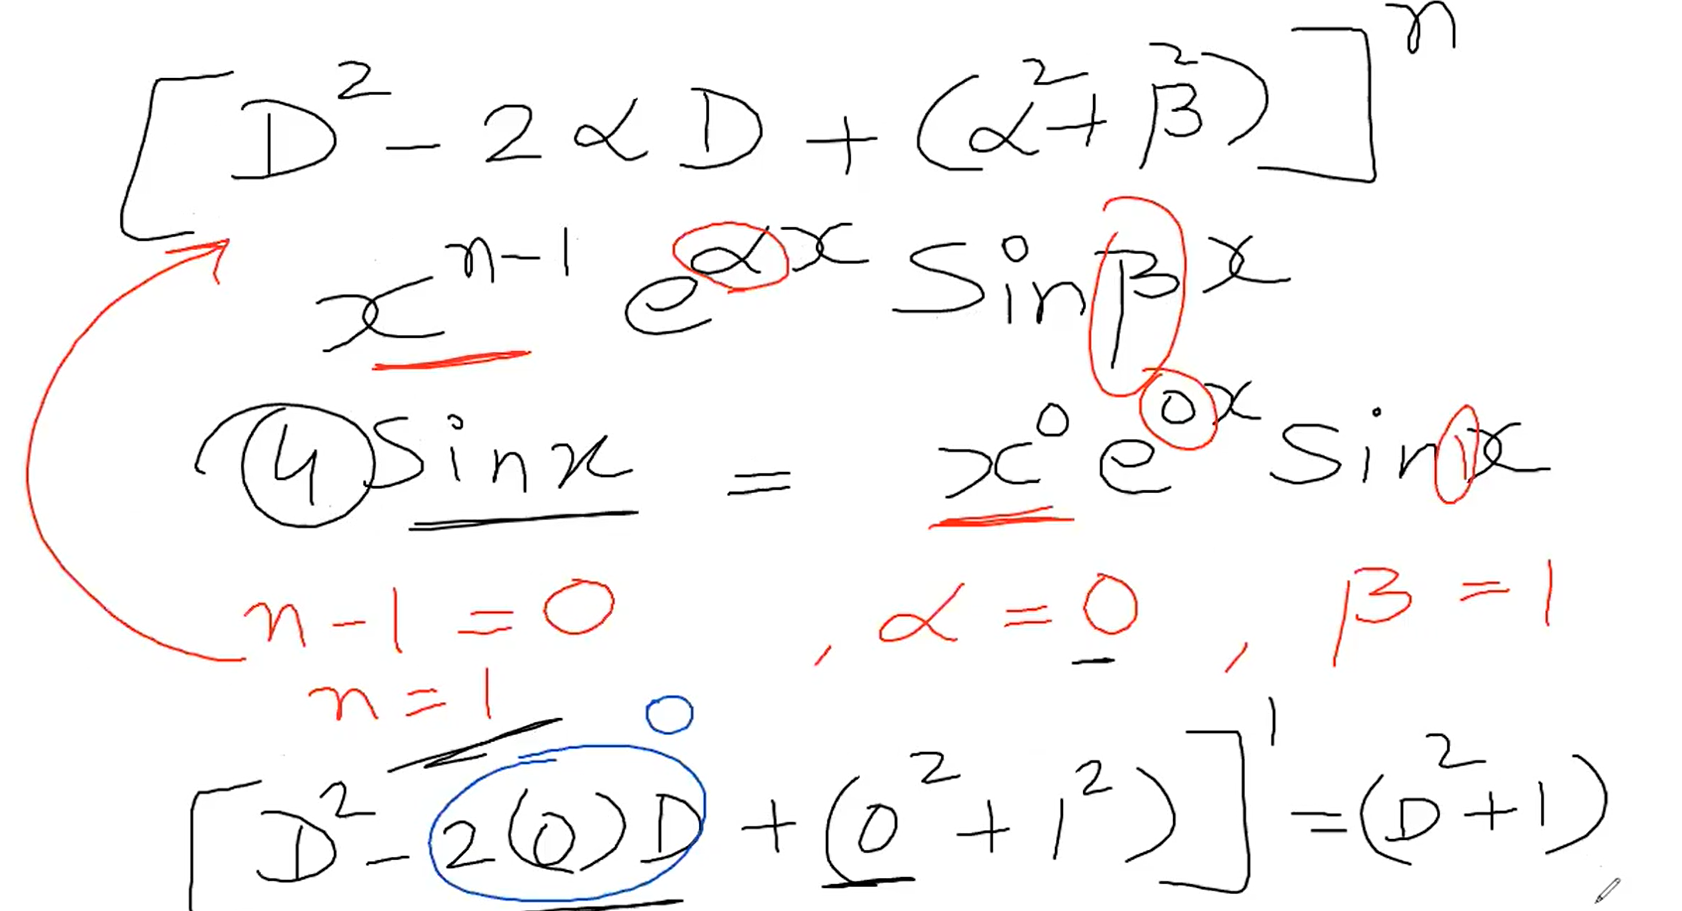 [D² - 2αD + (α² + β²)]ⁿ
xⁿ⁻¹ e^αx Sin βx
4 Sin x = x⁰ e^0x Sin 1x
n - 1 = 0 , α = 0 , β = 1
n = 1
0
[D² - 2(0)D + (0² + 1²)]¹ = (D² + 1)